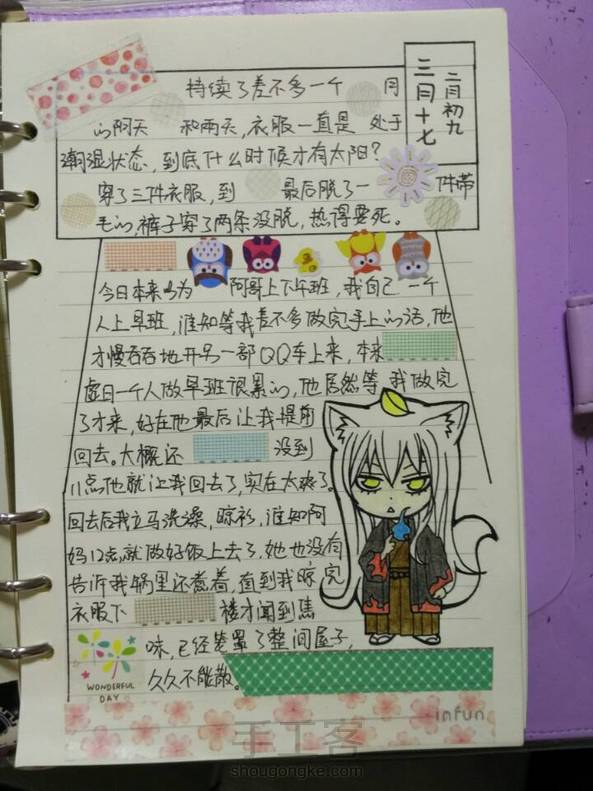 三月十七
二月初九
持续了差不多一个 月
的阴天 和雨天,衣服一直是 处于
潮湿状态,到底什么时候才有太阳?
穿了三件衣服,到 最后脱了一 件带
毛的,裤子穿了两条没脱,热得要死。
今日本来以为 阿哥上下午班,我自己一个
人上早班,谁知等我差不多做完手上的活,他
才慢吞吞地开另一部QQ车上来,本来
虚日一个人做早班很累的,他居然等 我做完
了才来,好在他最后让我提前
回去。大概还 没到
11点他就让我回去了,实在太爽了。
回去后我立马洗澡,晾衫,谁知阿
妈12点就做好饭上去了,她也没有
告诉我锅里还煮着,直到我晾完
衣服下 楼才闻到焦
味,已经笼罩了整间屋子,
久久不能散。
WONDERFUL
DAY
infun
手工客
shougongke.com